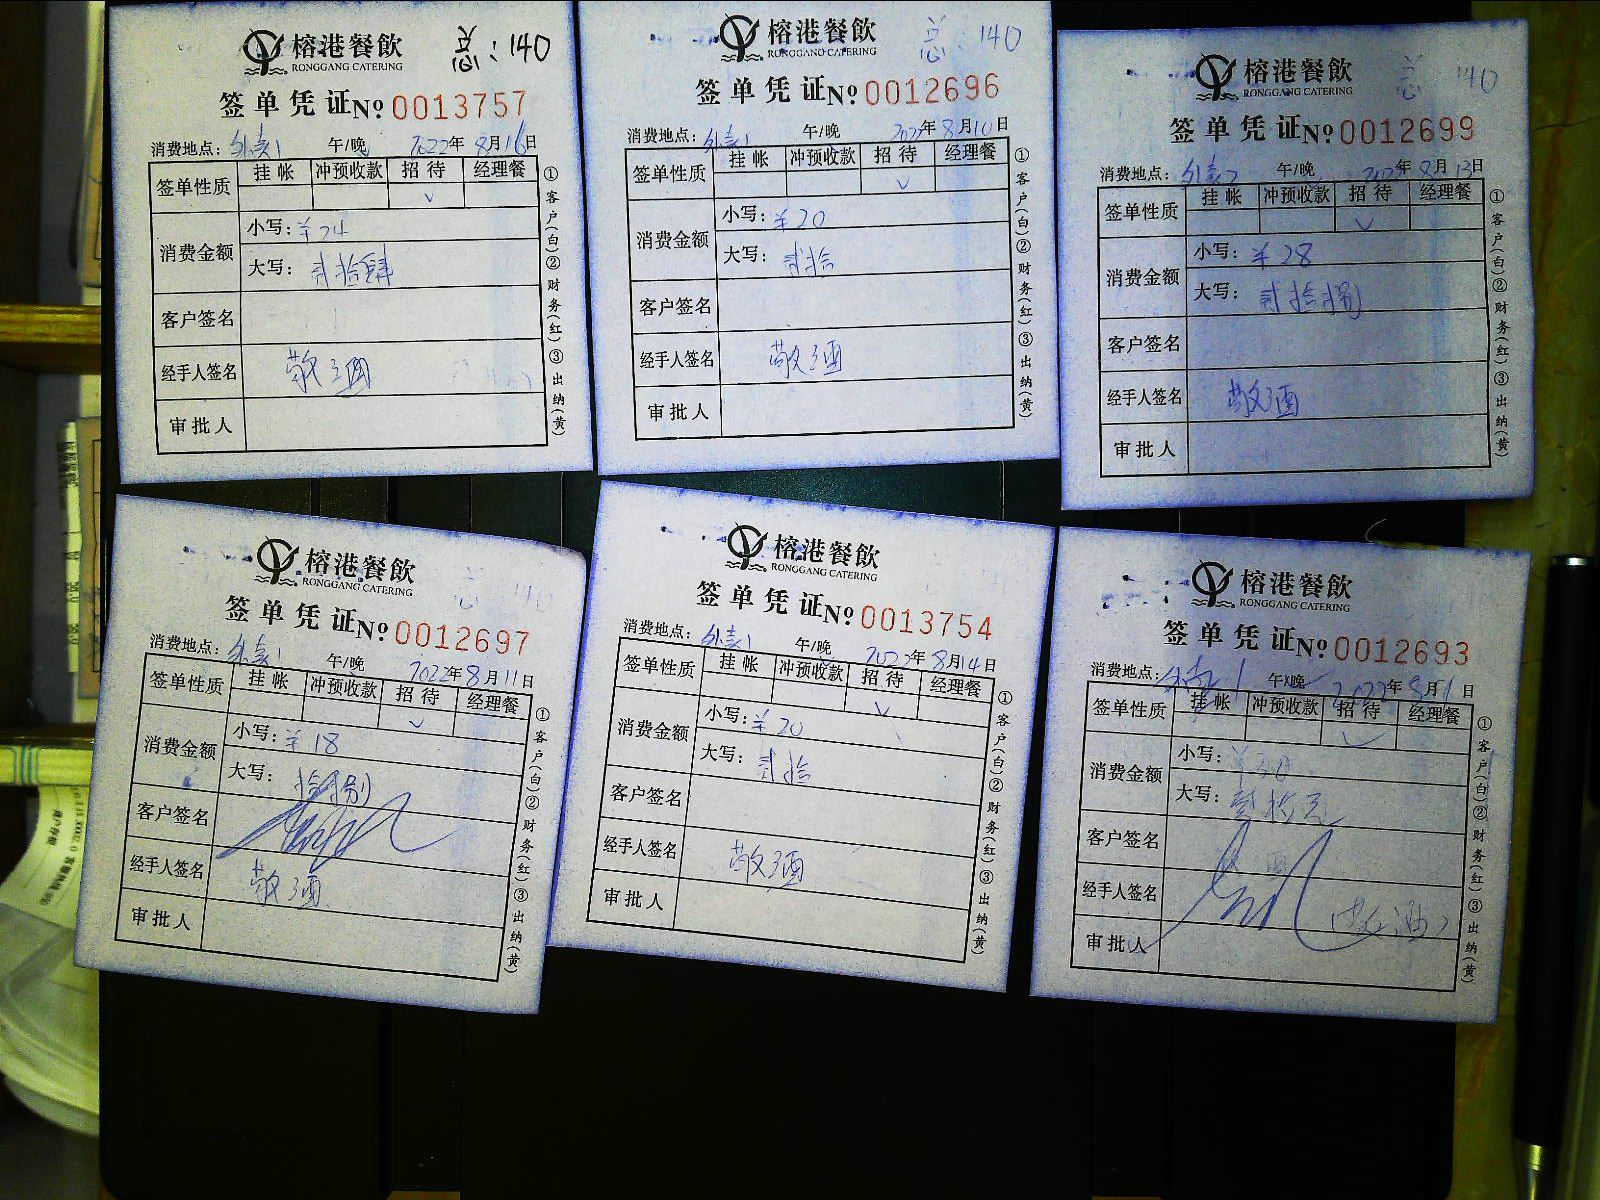 榕港餐飲 总:140
RONGGANG CATERING
签单凭证 № 0013757
消费地点: 外卖1 午/晚 2022年8月16日
签单性质 挂帐 冲预收款 招待 经理餐
√
消费金额 小写: ¥24
大写: 贰拾肆
客户签名
经手人签名 敬酒
审批人
①客户(白)②财务(红)③出纳(黄)
榕港餐飲 总:140
RONGGANG CATERING
签单凭证 № 0012696
消费地点: 外卖1 午/晚 2022年8月10日
签单性质 挂帐 冲预收款 招待 经理餐
√
消费金额 小写: ¥20
大写: 贰拾
客户签名
经手人签名 敬酒
审批人
①客户(白)②财务(红)③出纳(黄)
榕港餐飲 总 140
RONGGANG CATERING
签单凭证 № 0012699
消费地点: 外卖2 午/晚 2022年8月13日
签单性质 挂帐 冲预收款 招待 经理餐
√
消费金额 小写: ¥28
大写: 贰拾捌
客户签名
经手人签名 敬酒
审批人
①客户(白)②财务(红)③出纳(黄)
榕港餐飲 总 140
RONGGANG CATERING
签单凭证 № 0012697
消费地点: 外卖1 午/晚 2022年8月11日
签单性质 挂帐 冲预收款 招待 经理餐
√
消费金额 小写: ¥18
大写: 拾捌
客户签名
经手人签名 敬酒
审批人
①客户(白)②财务(红)③出纳(黄)
榕港餐飲
RONGGANG CATERING
签单凭证 № 0013754
消费地点: 外卖1 午/晚 2022年8月14日
签单性质 挂帐 冲预收款 招待 经理餐
√
消费金额 小写: ¥20
大写: 贰拾
客户签名
经手人签名 敬酒
审批人
①客户(白)②财务(红)③出纳(黄)
榕港餐飲
RONGGANG CATERING
签单凭证 № 0012693
消费地点: 外卖1 午/晚 2022年8月1日
签单性质 挂帐 冲预收款 招待 经理餐
√
消费金额 小写:
大写: 拾元
客户签名
经手人签名
审批人
①客户(白)②财务(红)③出纳(黄)